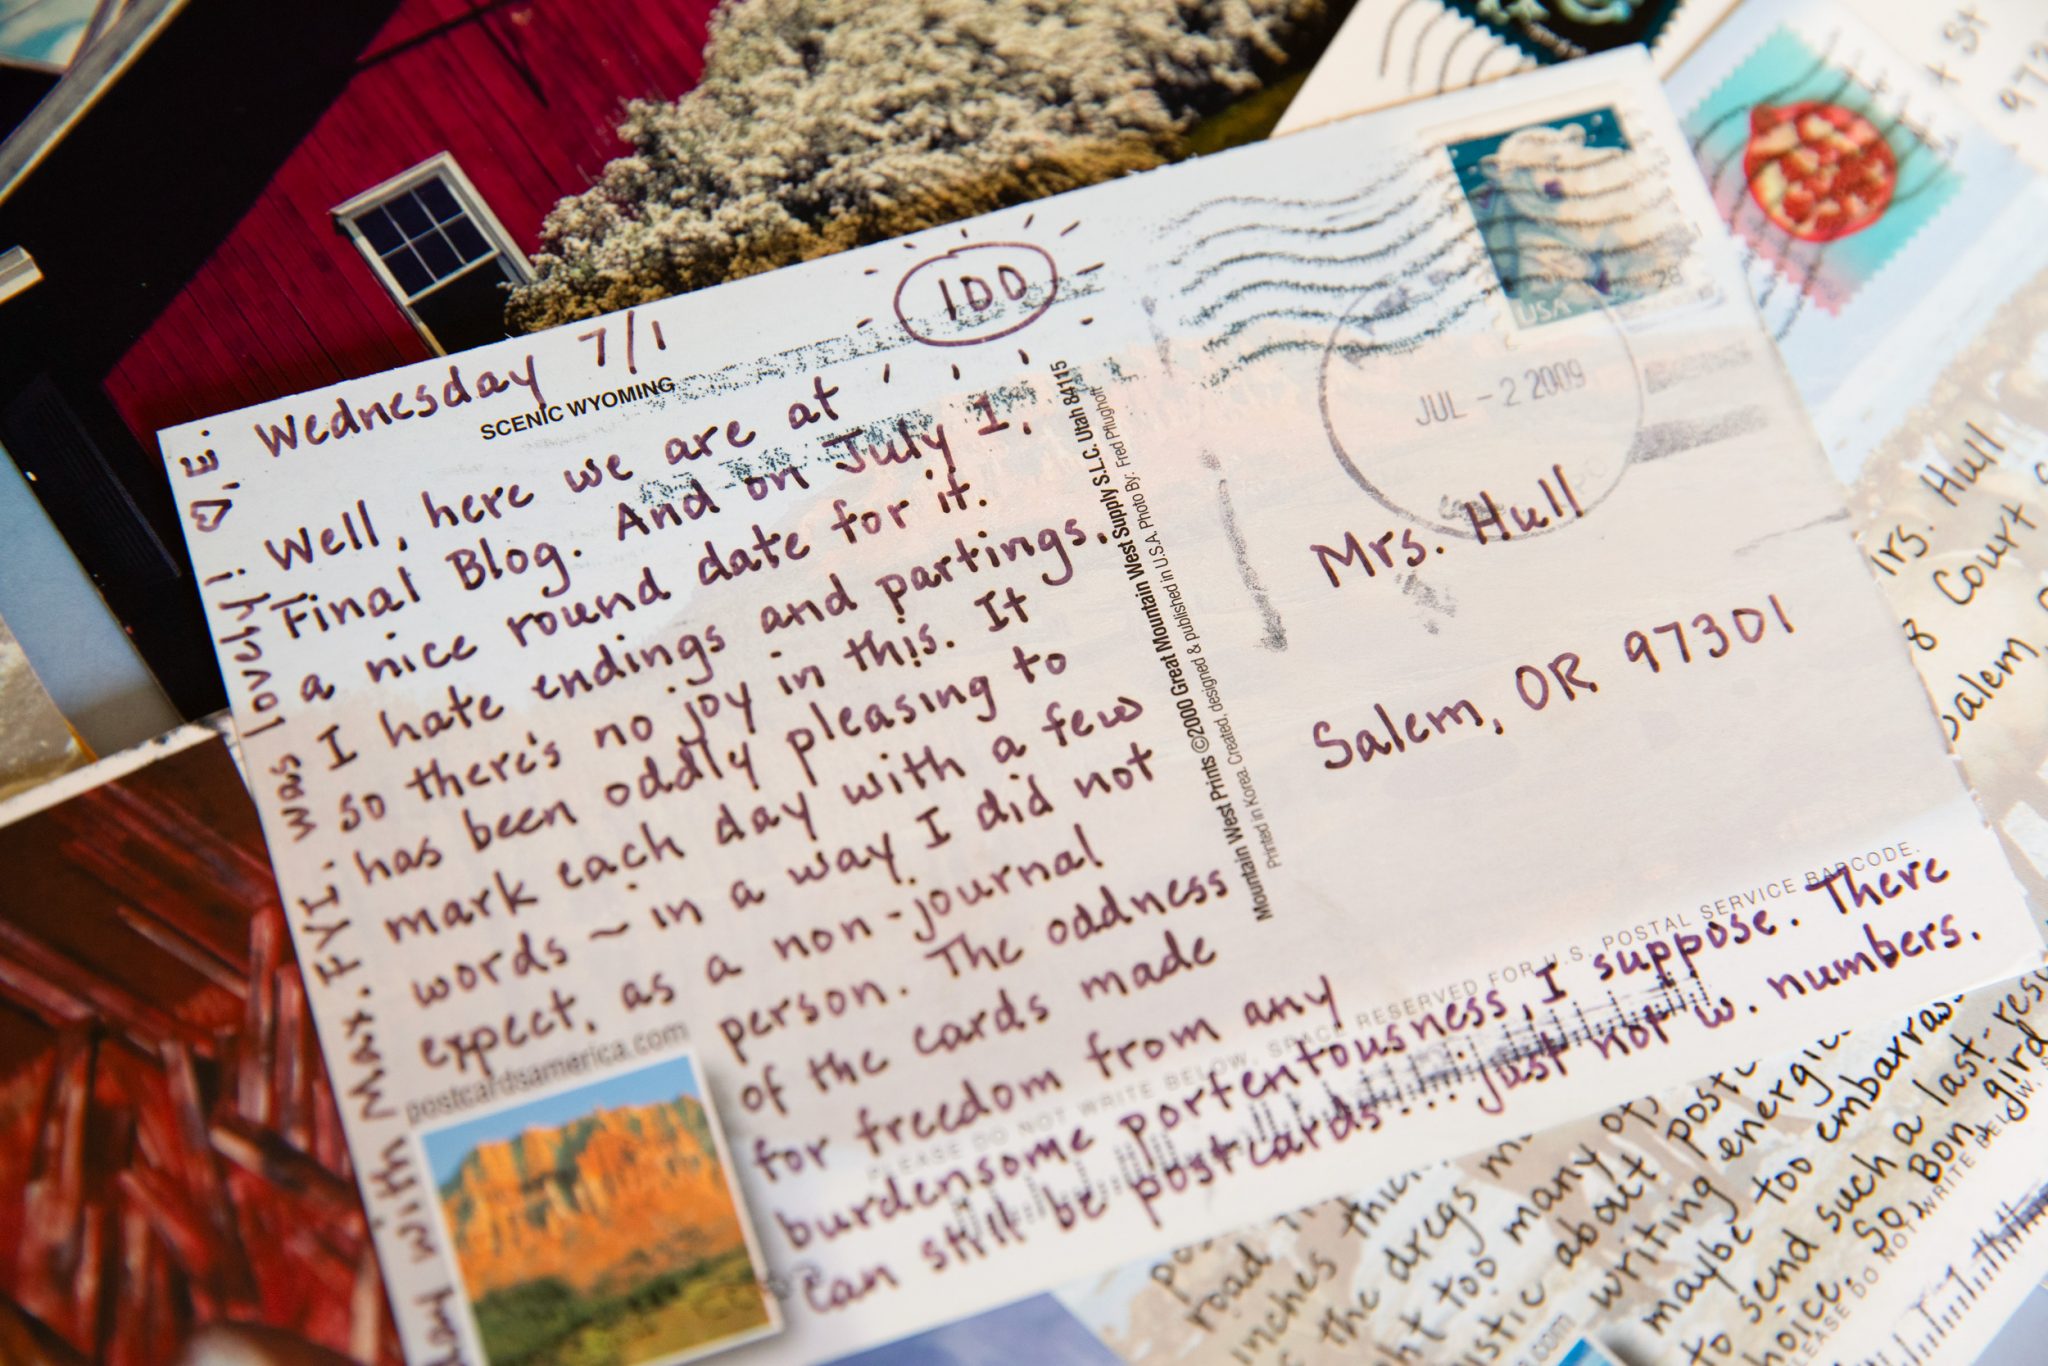 Wednesday 7/1
100
SCENIC WYOMING
Well, here we are at
Final Blog. And on July 1,
a nice round date for it.
I hate endings and partings,
so there's no joy in this. It
has been oddly pleasing to
mark each day with a few
words ~ in a way I did not
expect, as a non-journal
person. The oddness
of the cards made
for freedom from any
burdensome portentousness, I suppose. There
can still be postcards... just not w. numbers.
with Max. FYI. was lovely! ♡, E.
postcardsamerica.com
Mountain West Prints ©2000 Great Mountain West Supply S.L.C. Utah 84115
Printed in Korea. Created, designed & published in U.S.A. Photo By: Fred Pflughoft
USA
JUL - 2 2009
Mrs. Hull
Salem, OR 97301
PLEASE DO NOT WRITE BELOW, SPACE RESERVED FOR U.S. POSTAL SERVICE BARCODE.
St
973
Hull
Court
Salem,
road
inches
the dregs
too many of
about
writing energ
maybe too embarra
to send such a last-res
So, Bon
DO NOT WRITE BELOW, S